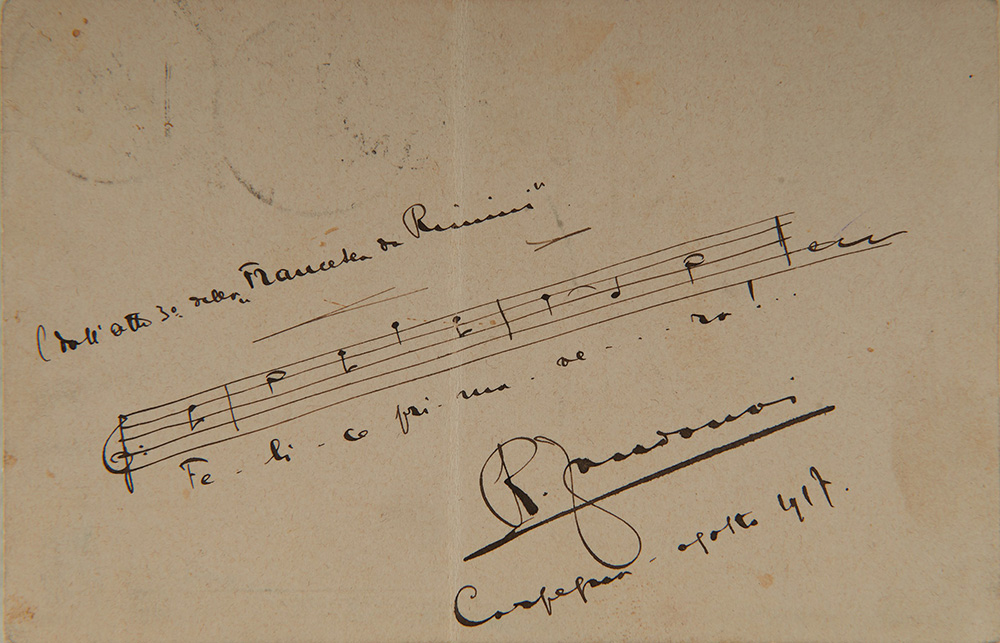 (dall'atto 3º della „Francesca da Rimini"
ecc
Fe - li - ce pri - ma - ve - . . ra! . .
R. Zandonai
Carpegna - agosto 1917.